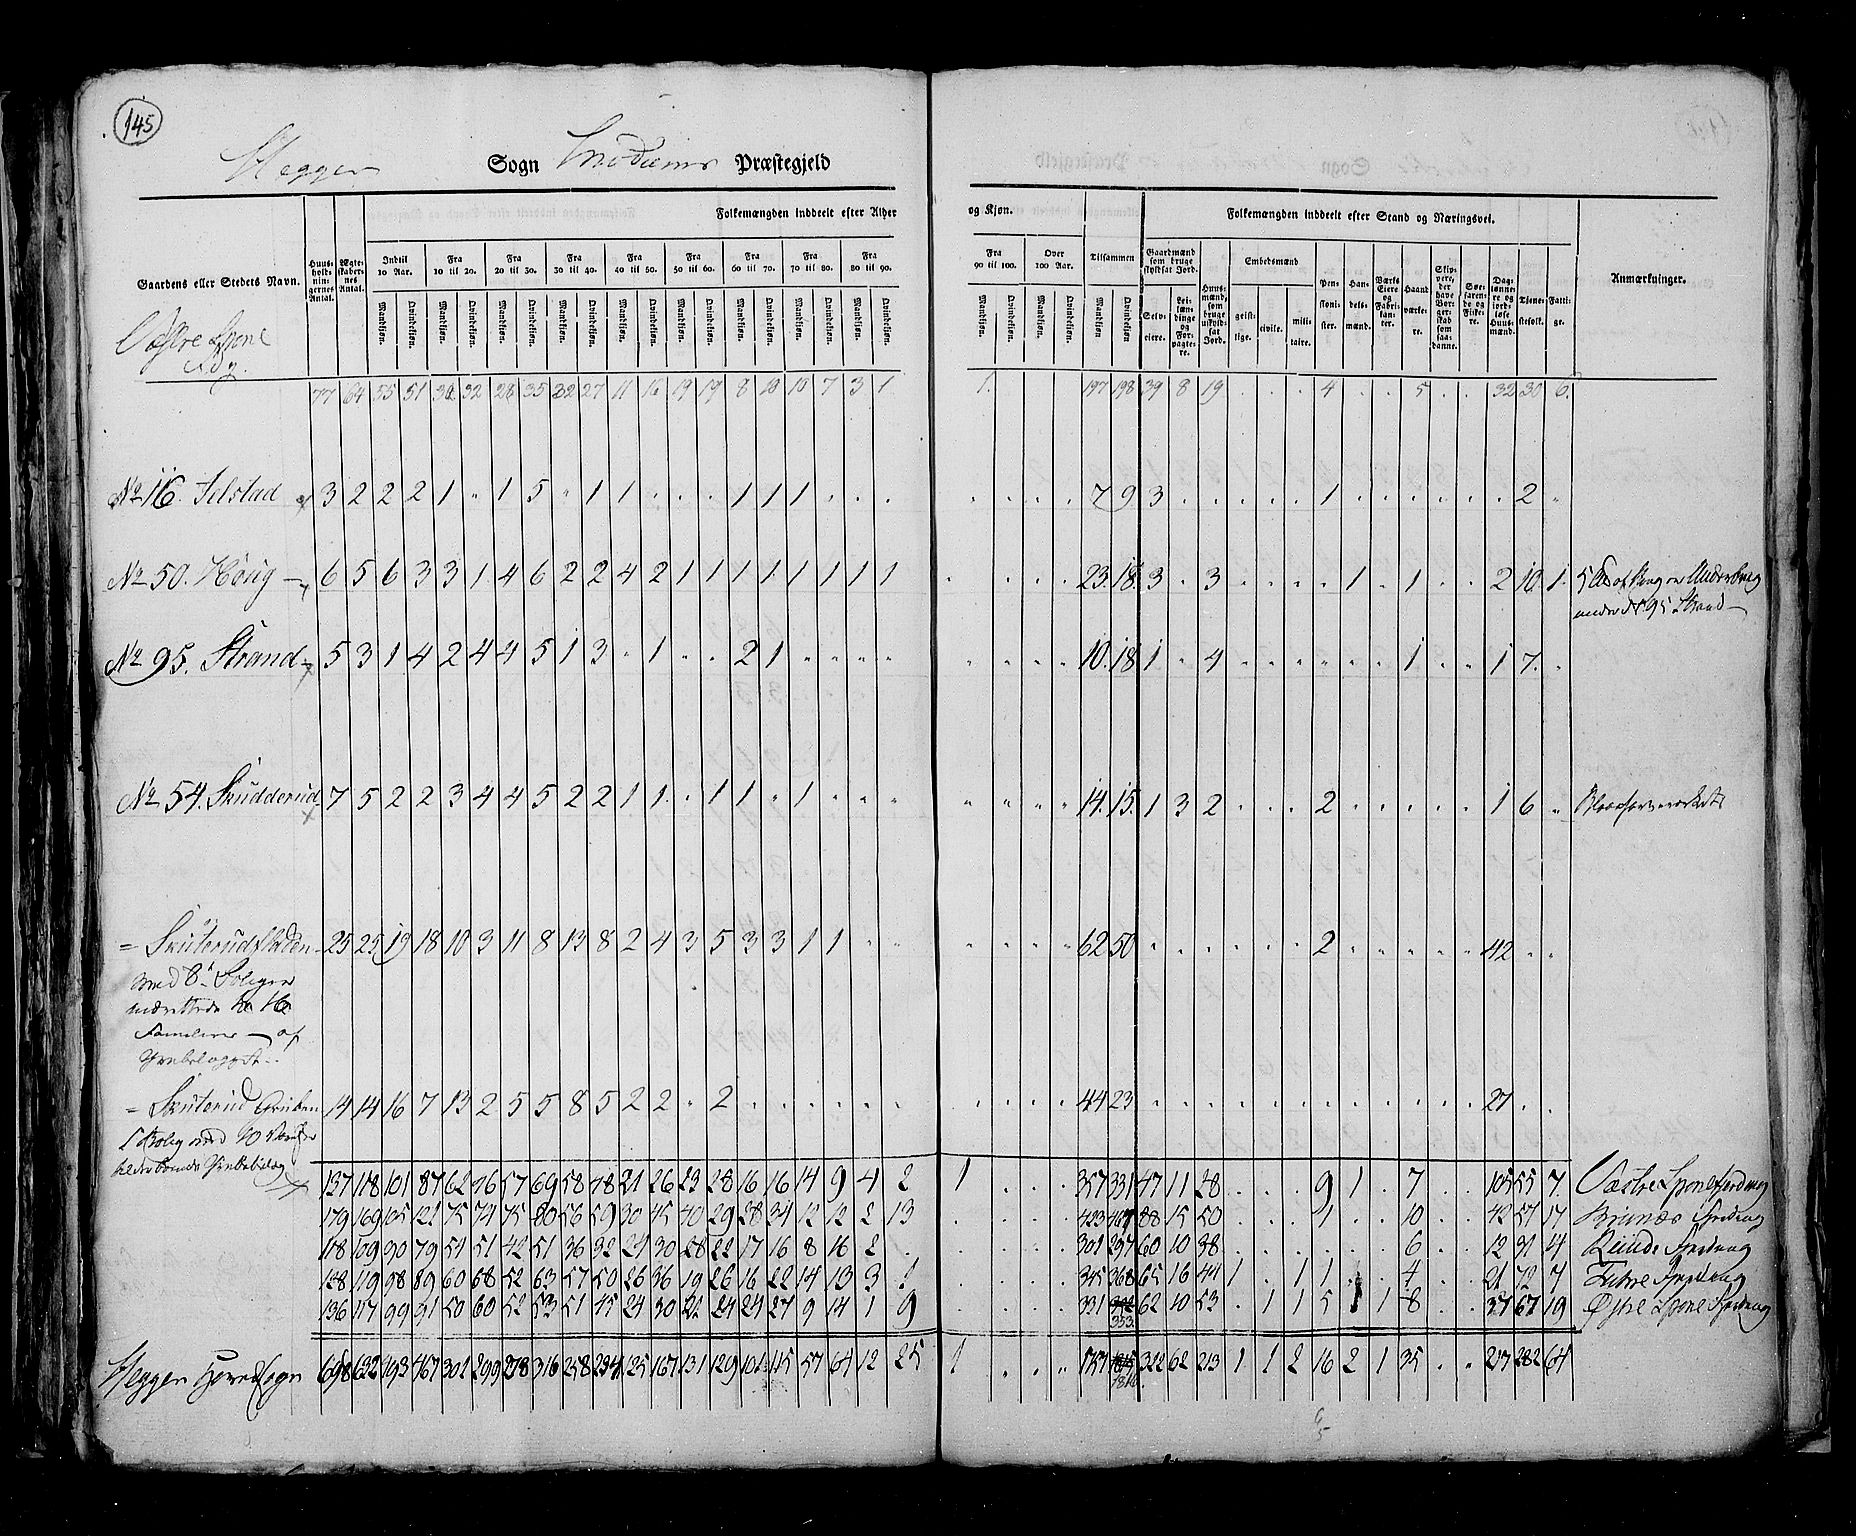 145
Hegger Sogn Modums Præstegjeld
Folkemængden inddeelt efter Alder og Kjøn.
Folkemængden inddeelt efter Stand og Næringsvei.
Gaardens eller Stedets Navn.
Huus-holdnin-gernes Antal.
Ægte-skaber-nes Antal.
Indtil 10 Aar.
Fra 10 til 20.
Fra 20 til 30.
Fra 30 til 40.
Fra 40 til 50.
Fra 50 til 60.
Fra 60 til 70.
Fra 70 til 80.
Fra 80 til 90.
Fra 90 til 100.
Over 100 Aar.
Tilsammen
Mandkjøn. Qvindekjøn.
Gaardmænd som bruge skyldsat Jord.
Selv-eiere.
Lei-læn-dinge og For-pagte-re.
Huus-mænd, som bruge uskyld-sat Jord.
Embedsmænd
geist-lige. civile. mili-taire.
Pen-sioni-ster.
Han-dels-mænd.
Værks Eiere og Fabri-kan-ter.
Haand værke-re.
Skip-pere, der have Bor-ger-skab som saa-danne.
Søe-faren-de og Fiske-re.
Dag-lønne-re og jord-løse Huus-mænd.
Tjene-stefolk.
Fatti-ge.
Anmærkninger.
Væstre Spone
77 64 55 51 36 32 28 35 32 27 11 16 19 19 8 10 10 7 3 1 1. 197 198 39 8 19 . . . 4 . . 5 . . 32 30 6.
No 116. Jelstad 3 2 2 2 1 . 1 5 . 1 1 . . . 1 1 1 . . . 7 9 3 . . . . . 1 . . . . . . 2 .
No 50. Hørig 6 5 6 3 3 1 4 6 2 2 4 2 1 1 1 1 1 1 1 1 23. 18. 3 . 3 . . . . 1 . 1 . . 2 10. 1. 5
under No 95 Strand
No 95. Strand 5 3 1 4 2 4 4 5 1 3 . 1 . . 2 1 . . . . 10. 18 1 . 4 . . . . . . 1 . . 1 7. .
No 54. Skudderud 7 5 2 2 3 4 4 5 2 2 1 1. . 1 1 . 1 . . . 14. 15. 1 3 2 . . . 2 . . . . . 1 6 . Blaafarveværket
= Skuterudfladen 25 25 19 18 10 3 11 8 13 8 2 4 3 5 3 3 1 1 . . 62 50 . . . . . . 2 . . . . . 42 . .
med 8 Boliger
Familier — af
= Skuterud Gruben 14 14 16 7 13 2 5 5 8 5 2 2 . 2 . . . . . . 44 23 . . . . . . . . . . . . 27 . .
1 Bolig med
137 118 101 87 62 46 57 69 58 48 21 26 23 28 16 16 14 9 4 2 1 . . . 357 331 47 11 28 . . . 9 1 . 7 . . 105 55 7. Væstre Spone Fjerding
179 169 105 122 75 74 75 80 56 59 30 45 40 29 28 34 12 12 2 13 . . . . 423 467 88 15 50 . . . 1 . . 10 . . 42 57 17 Fjerding
108 109 90 79 54 51 42 51 36 32 24 30 28 22 17 16 8 16 2 . . . . . 301 297 60 10 38 . . . . . . 6 . . 12 31 4 Fjerding
138 119 98 89 60 68 52 63 57 50 26 36 19 26 16 22 14 13 3 1 . . . . 345 368 65 16 44 1 . 1 1 . . 4 . . 21 72 7 Fjerding
136 117 99 91 50 60 52 53 51 45 24 30 21 24 24 27 9 14 1 9 . . . . 331 353. 62 10 53 . 1 1 5 1 1 8 . . 37 67 19 Østre Spone Fjerding
Hegger Hovedsogn 698 632 493 467 301 299 278 316 258 234 125 167 131 129 101 115 57 64 12 25 1 . . . 1757 1816 322 62 213 1 1 2 16 2 1 35 . . 217 282 64